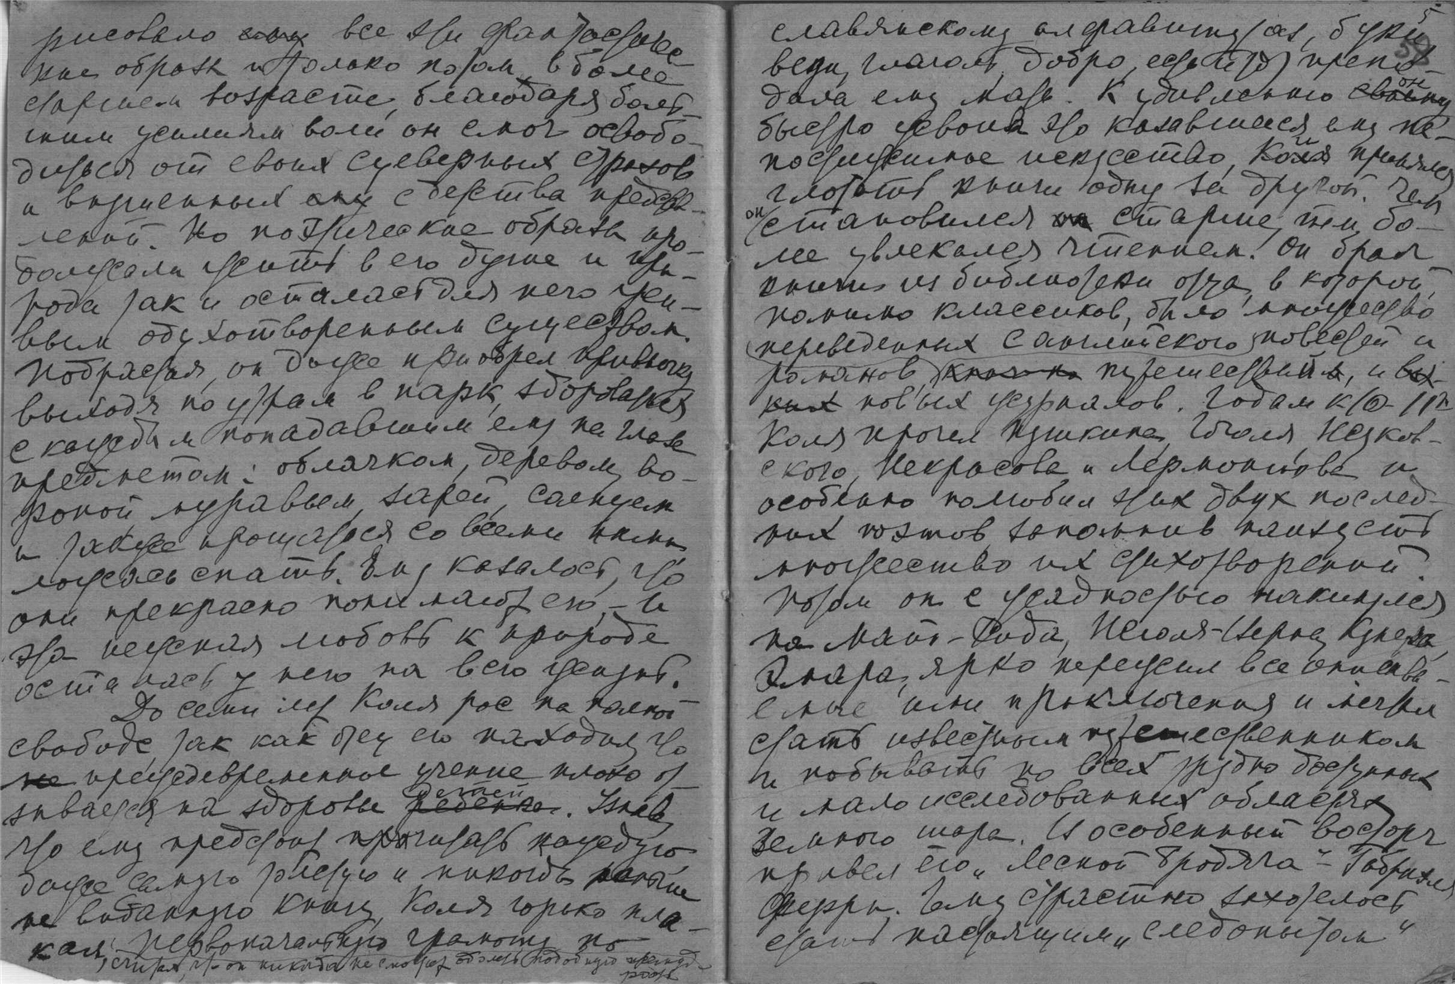 рисовало все эти фантастичес-
кие образы и только потом, в более
старшем возрасте, благодаря боль-
шим усилиям воли он смог освобо-
диться от своих суеверных страхов
и внушенных ему с детства представ-
лений. Но поэтические образы про-
должали жить в его душе и при-
рода так и осталась для него жи-
вым одухотворенным существом.
Подрастая, он даже приобрел привычку
выходя по утрам в парк, здороваться
с каждым попадавшим ему на глаза
предметом: облачком, деревом, во-
роной, муравьем, зарей, солнцем
и также прощаться со всеми ними
ложась спать. Ему казалось, что
они прекрасно понимают его. – И
эта нежная любовь к природе
осталась у него на всю жизнь.
До семи лет Коля рос на полной
свободе, так как отец его находил, что
не преждевременное учение плохо от-
зывается на здоровье ребенка детей. Узнав
что ему предстоит прочитать каждую
даже самую толстую и никогда
не виданную книгу, Коля горько пла-
кал, считая, что он никогда не сможет одолеть подобную премуд-
рость
Первоначальную грамоту по
5
58
славянскому алфавиту (аз, буки
веди, глаголь, добро, есть и т.д.) препо-
дала ему мать. К удивлению своему он
быстро усвоил это казавшееся ему не-
постижимое искусство, Коля и принялся
глотать книги одну за другой. Чем
он становился он старше, тем бо-
лее увлекался чтением. Он брал
книги из библиотеки отца, в которой,
помимо классиков, было множество
переведенных с английского повестей и
романов, путешествий, и
новых журналов. Годам к 10-11и
Коля прочел Пушкина, Гоголя, Жуков-
ского, Некрасова и Лермонтова и
особенно полюбил этих двух послед-
них поэтов запомнив наизусть
множество их стихотворений.
Потом он с жадностью накинулся
на Майн-Рида, Жюля-Верна, Купера,
Эмара, ярко пережил все описыва-
емые ими приключения и мечтал
стать известным путешественником
и побывать во всех трудно доступных
и мало исследованных областях
земного шара. В особенный восторг
привел его „Лесной бродяга" – Габриэля
Ферри. Ему страстно захотелось
стать настоящим „следопытом"